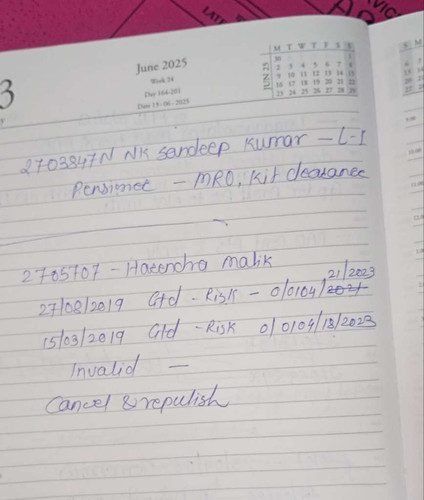 June 2025
Week 24
Day 164-201
Date 13-06-2025
JUN 25
M T W T F S S
30 1
2 3 4 5 6 7 8
9 10 11 12 13 14 15
16 17 18 19 20 21 22
23 24 25 26 27 28 29
3
2703847N NK Sandeep Kumar - L-I
Pensimee - MRO, Kit clearance
2705707 - Harendra malik
27/08/2019 Gtd - Risk - 0/0104/2021 21/2023
15/03/2019 Gtd - Risk 0/0104/18/2023
Invalid -
Cancel & repulish
9.00
10.00
11.00
12.00